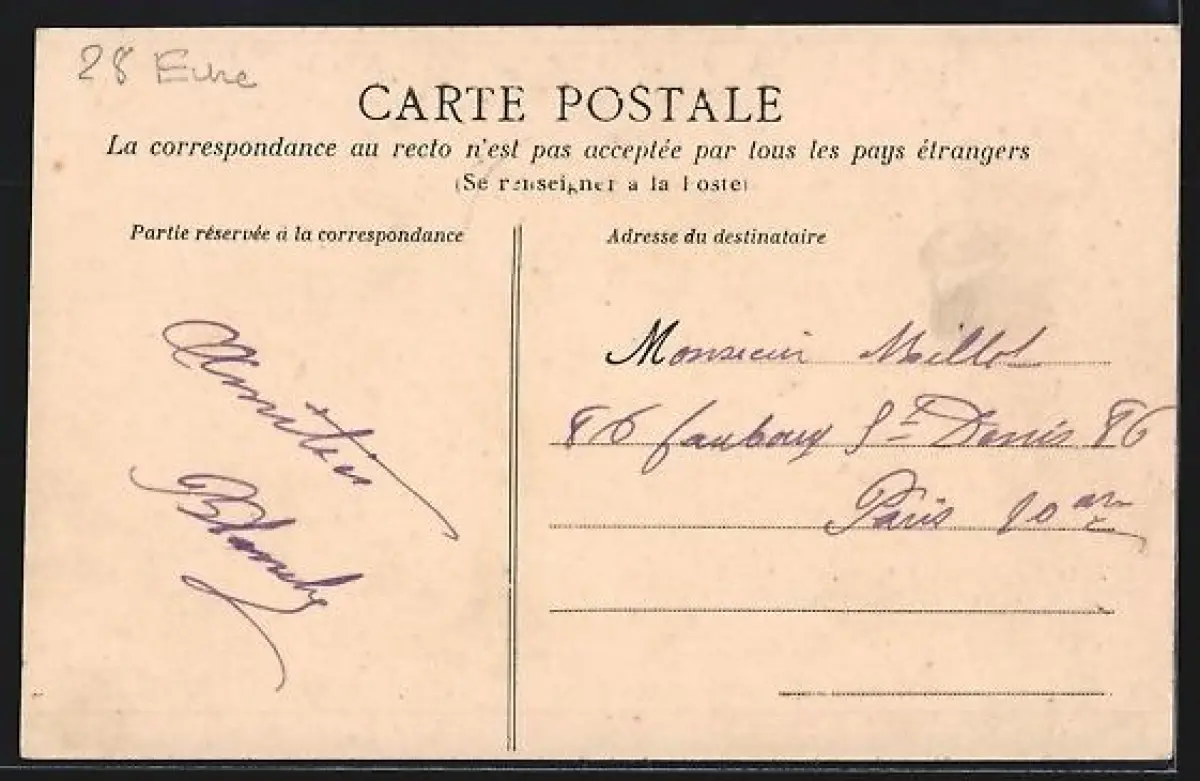 28 Eure
CARTE POSTALE
La correspondance au recto n'est pas acceptée par tous les pays étrangers
(Se renseigner à la Poste)
Partie réservée à la correspondance
Adresse du destinataire
Amitiés
Blanche
Monsieur Millot
86 faubourg St Denis 86
Paris 10 arr